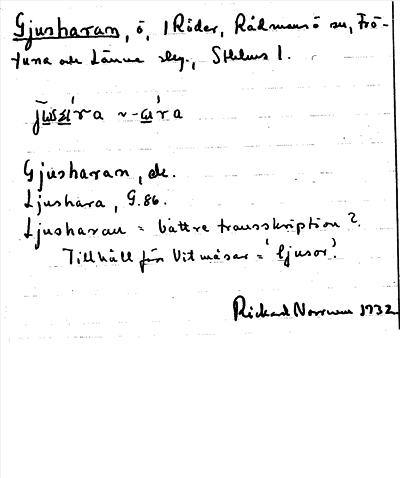 Gjusharan, ö, i Röder, Rådmansö sn, Frö-
tuna och Länna skg., Sthlms l.
Gjusharan, ek.
Ljushara, G.86.
Ljusharan = bättre transskription?
Tillhåll för vitmåsar = 'ljusor'?
Rickard Norrman 1932